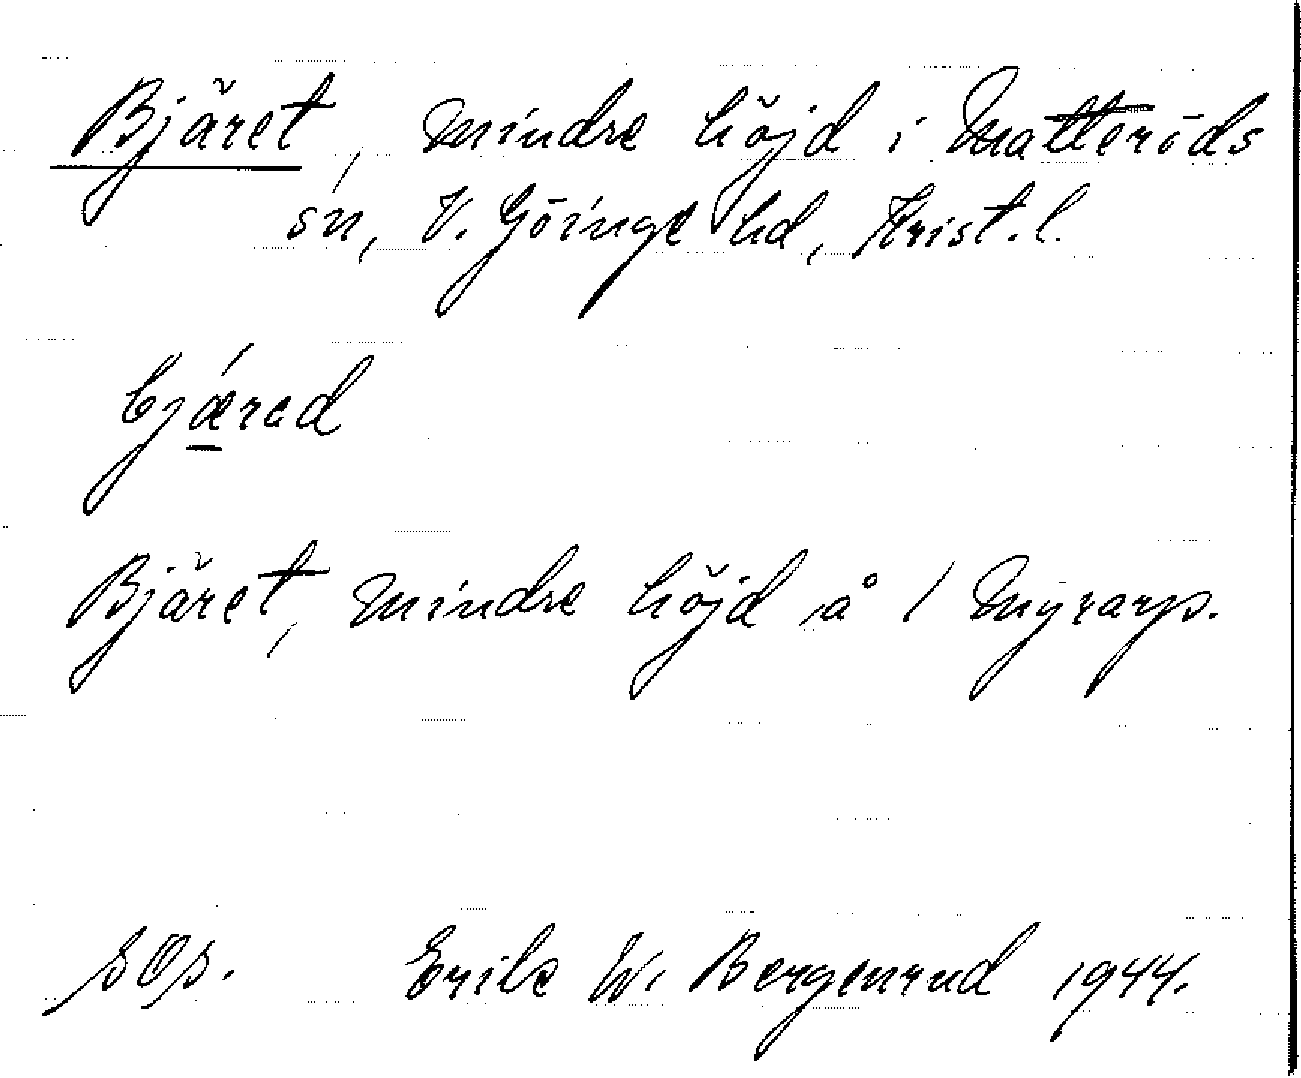 Bjäret, mindre höjd i Matteröds
sn, V. Göinge hd, Krist. l.
bjǽrad
Bjäret, mindre höjd å 1 Myrarp.
Erik W. Bergenrud 1944.